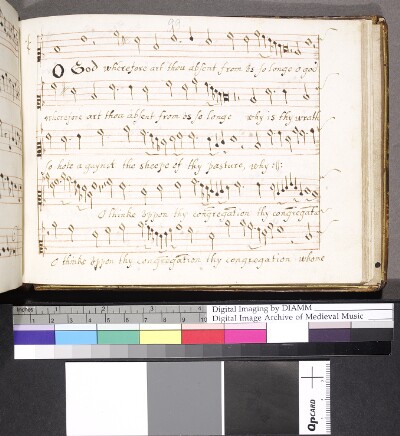 O God wherefore art thou absent from vs so longe o god
wherefore art thou absent from vs so longe why is thy wrath
so hote agaynst the sheepe of thy pasture, why :||:
O thinke vppon thy congregation thy congregatio
O thinke vppon thy congregation thy congregation whome
inches 1 2 3 4
1 2 3 4 5 6 7 8 9 10
Digital Imaging by DIAMM
Digital Image Archive of Medieval Music
QPCARD